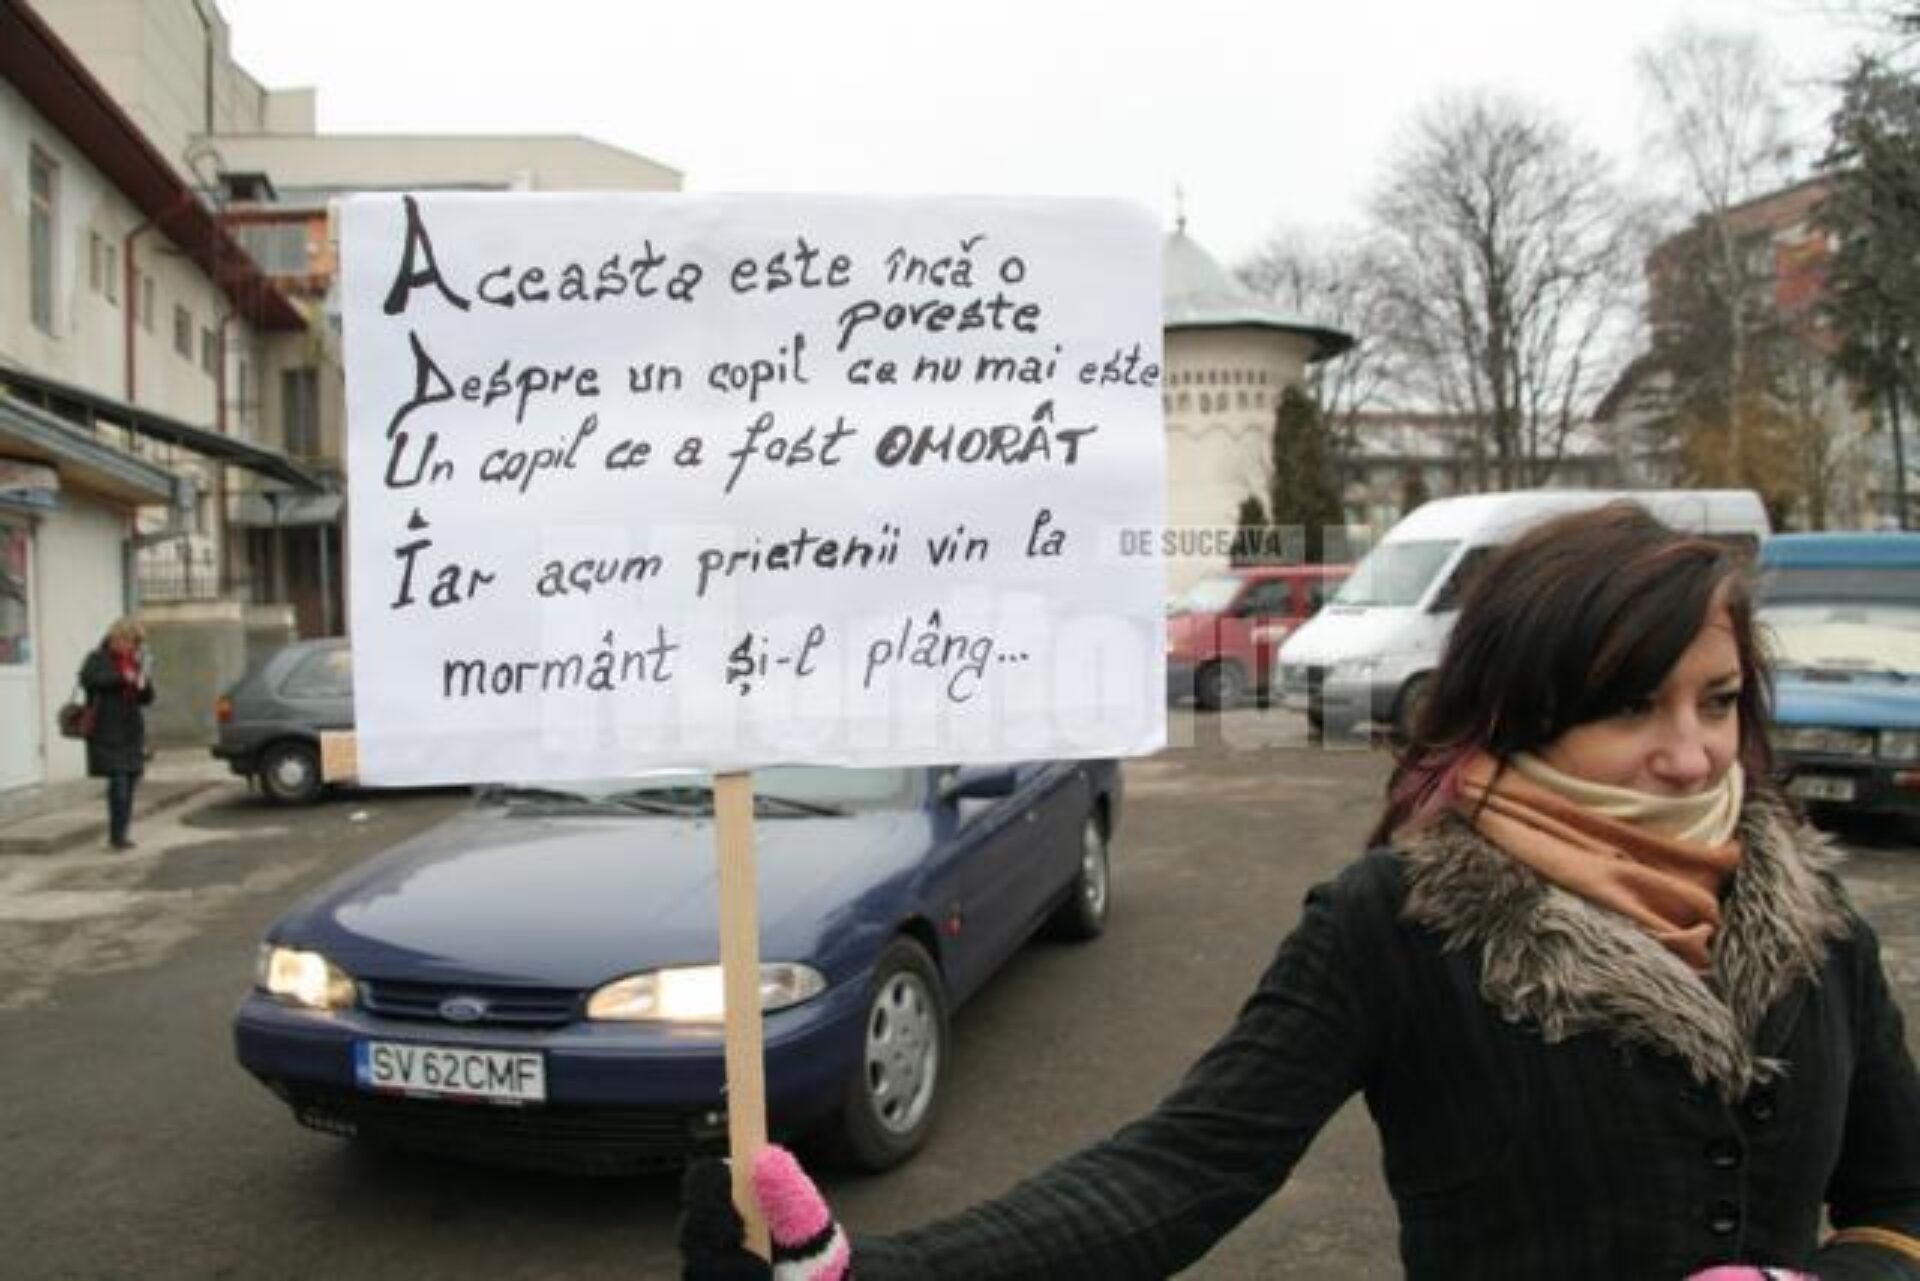 Aceasta este încă o
poveste
Despre un copil ce nu mai este
Un copil ce a fost OMORÂT
Iar acum prietenii vin la
mormânt și-l plâng...
DE SUCEAVA
Monitorul
SV 62CMF